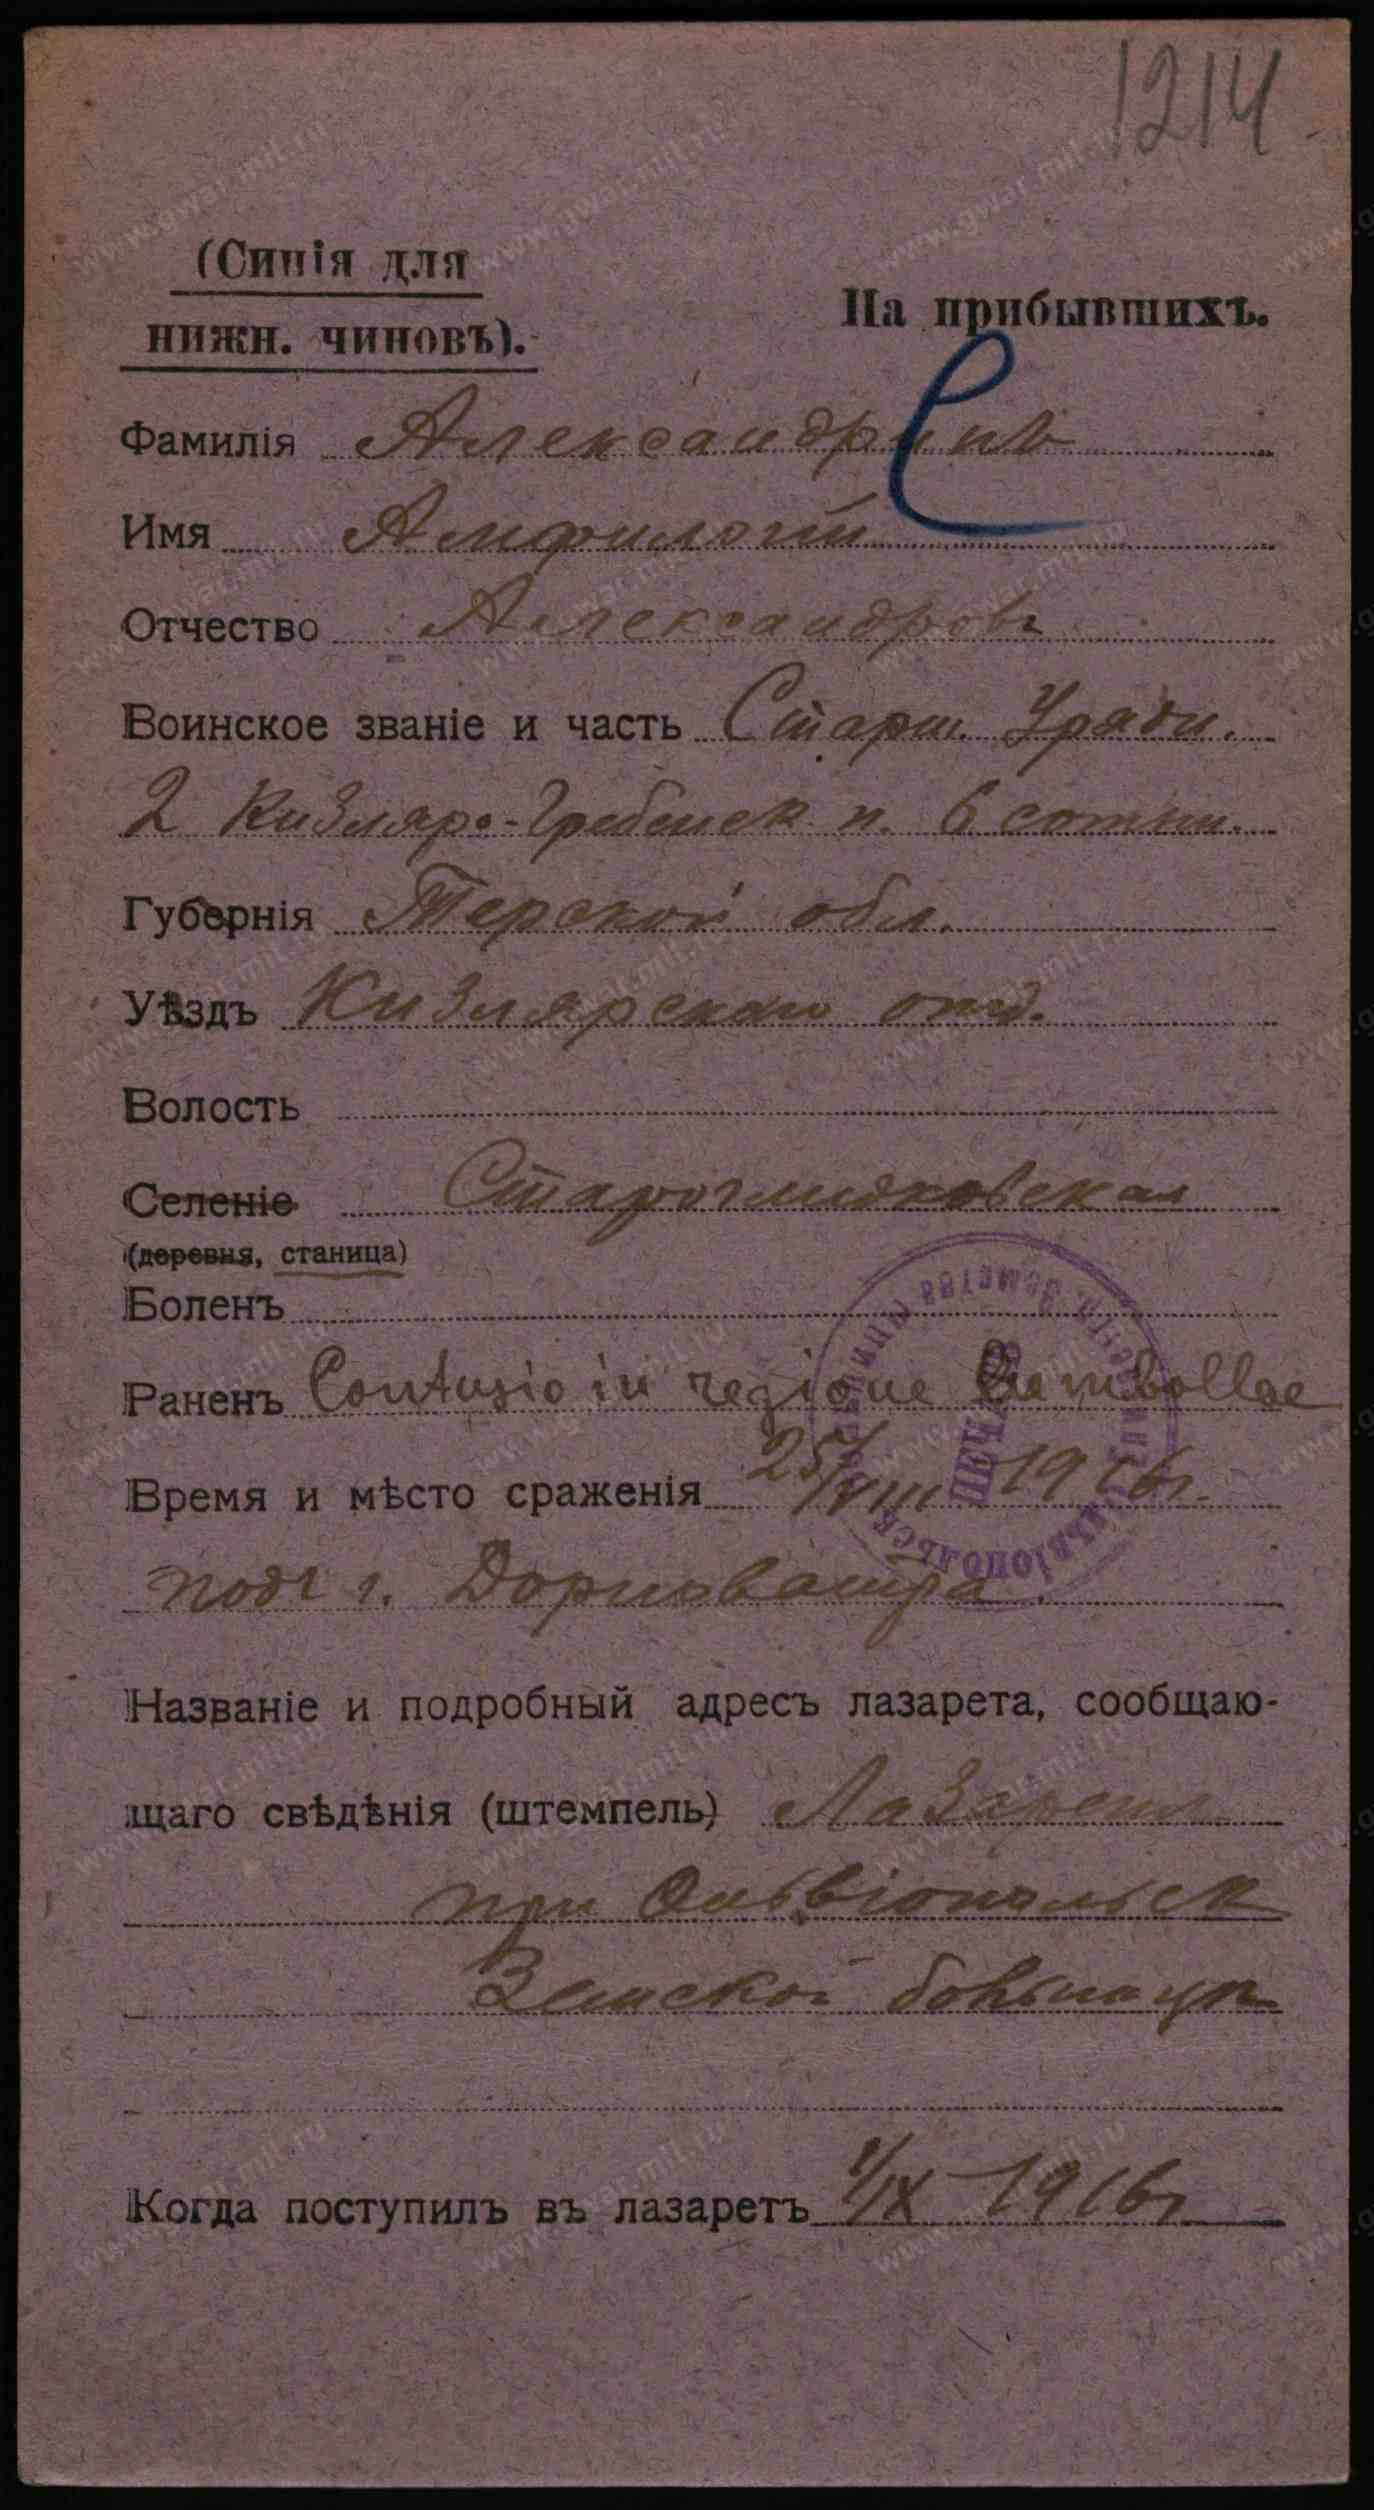 1214
(Синія для
нижн. чиновъ).
На прибывшихъ.
Фамилія Александринъ
Имя Амфилогій
Отчество Александровъ
Воинское званіе и часть Старш. Уряди.
2 Кизляро-Гребенск п. 6 сотни.
Губернія Терской обл.
Уѣздъ Кизлярскаго отд.
Волость
Селеніе Старогладковская
(деревня, станица)
Боленъ
Раненъ Contusio in regione lumbollae
Время и мѣсто сраженія 25/VIII 1916г.
подъ г. Дорноватра.
Названіе и подробный адресъ лазарета, сообщаю-
щаго свѣдѣнія (штемпель) Лазаретъ
при Ольвіопольск
Земской больницѣ
Когда поступилъ въ лазаретъ 1/IX 1916г
ПЕЧАТЬ
www.gwar.mil.ru